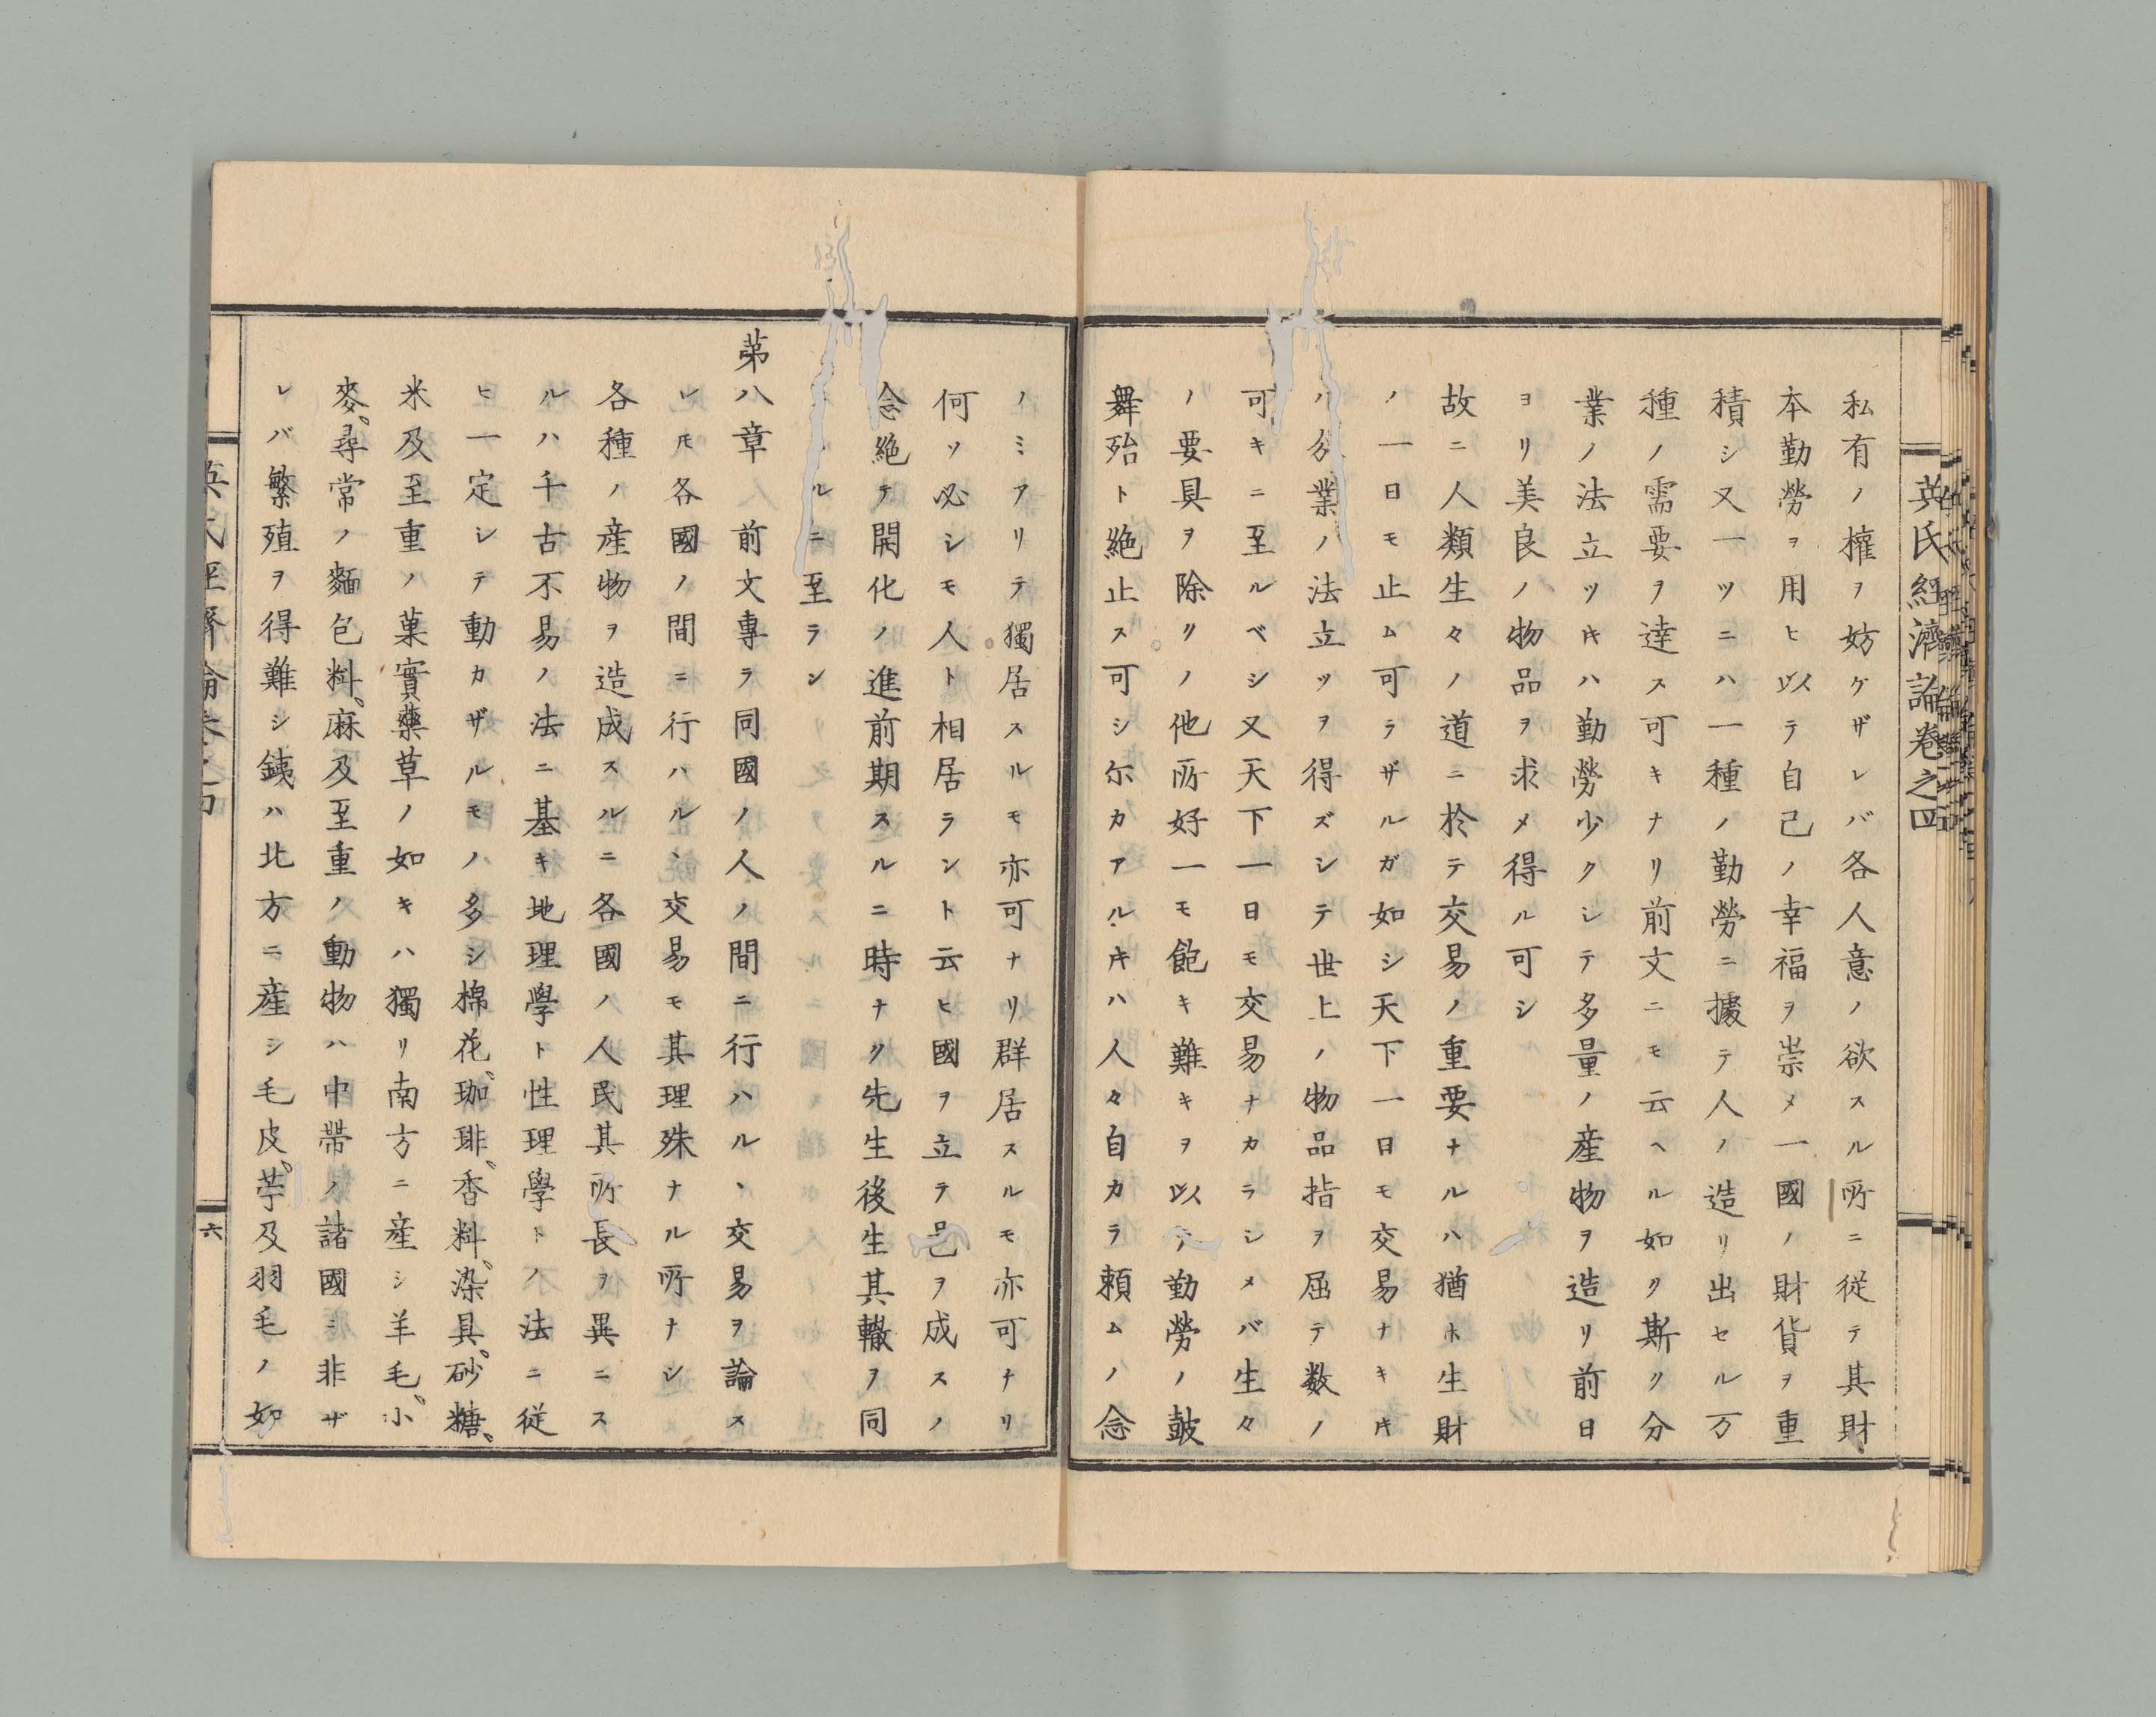 英氏經濟論卷之四
私有ノ權ヲ妨ゲザレバ各人意ノ欲スル所ニ從テ其財
本勤勞ヲ用ヒ以テ自己ノ幸福ヲ崇メ一國ノ財貨ヲ重
積シ又一ツニハ一種ノ勤勞ニ據テ人ノ造リ出セル万
種ノ需要ヲ達ス可キナリ前文ニモ云ヘル如ク斯ク分
業ノ法立ツキハ勤勞少クシテ多量ノ産物ヲ造リ前日
ヨリ美良ノ物品ヲ求メ得ル可シ
故ニ人類生々ノ道ニ於テ交易ノ重要ナルハ猶ホ生財
ノ一日モ止ム可ラザルガ如シ天下一日モ交易ナキ𪜈
ハ分業ノ法立ツヲ得ズシテ世上ノ物品指ヲ屈テ数ノ
可キニ至ルベシ又天下一日モ交易ナカラシメバ生々
ノ要具ヲ除クノ他所好一モ飽キ難キヲ以テ勤勞ノ鼓
舞殆ト絶止ス可シ尓カアルキハ人々自カラ頼ムノ念
ノミアリテ獨居スルモ亦可ナリ群居スルモ亦可ナリ
何ソ必シモ人ト相居ラント云ヒ國ヲ立テ邑ヲ成スノ
念絶テ開化ノ進前期スルニ時ナク先生後生其轍ヲ同
ルニ至ラン
第八章 前文專ラ同國ノ人ノ間ニ行ハル、交易ヲ論ス
レ𪜈各國ノ間ニ行ハル、交易モ其理殊ナル所ナシ
各種ノ産物ヲ造成スルニ各國ノ人民其所長ヲ異ニス
ルハ千古不易ノ法ニ基キ地理學ト性理學トノ法ニ從
ヒ一定シテ動カザルモノ多シ棉花、珈琲、香料、染具、砂糖、
米及至重ノ菓實藥草ノ如キハ獨リ南方ニ産シ羊毛、小
麥、尋常ノ麵包料、麻及至重ノ動物ハ中帶ノ諸國ニ非ザ
レバ繁殖ヲ得難シ銕ハ北方ニ産シ毛皮、苧及羽毛ノ如
六